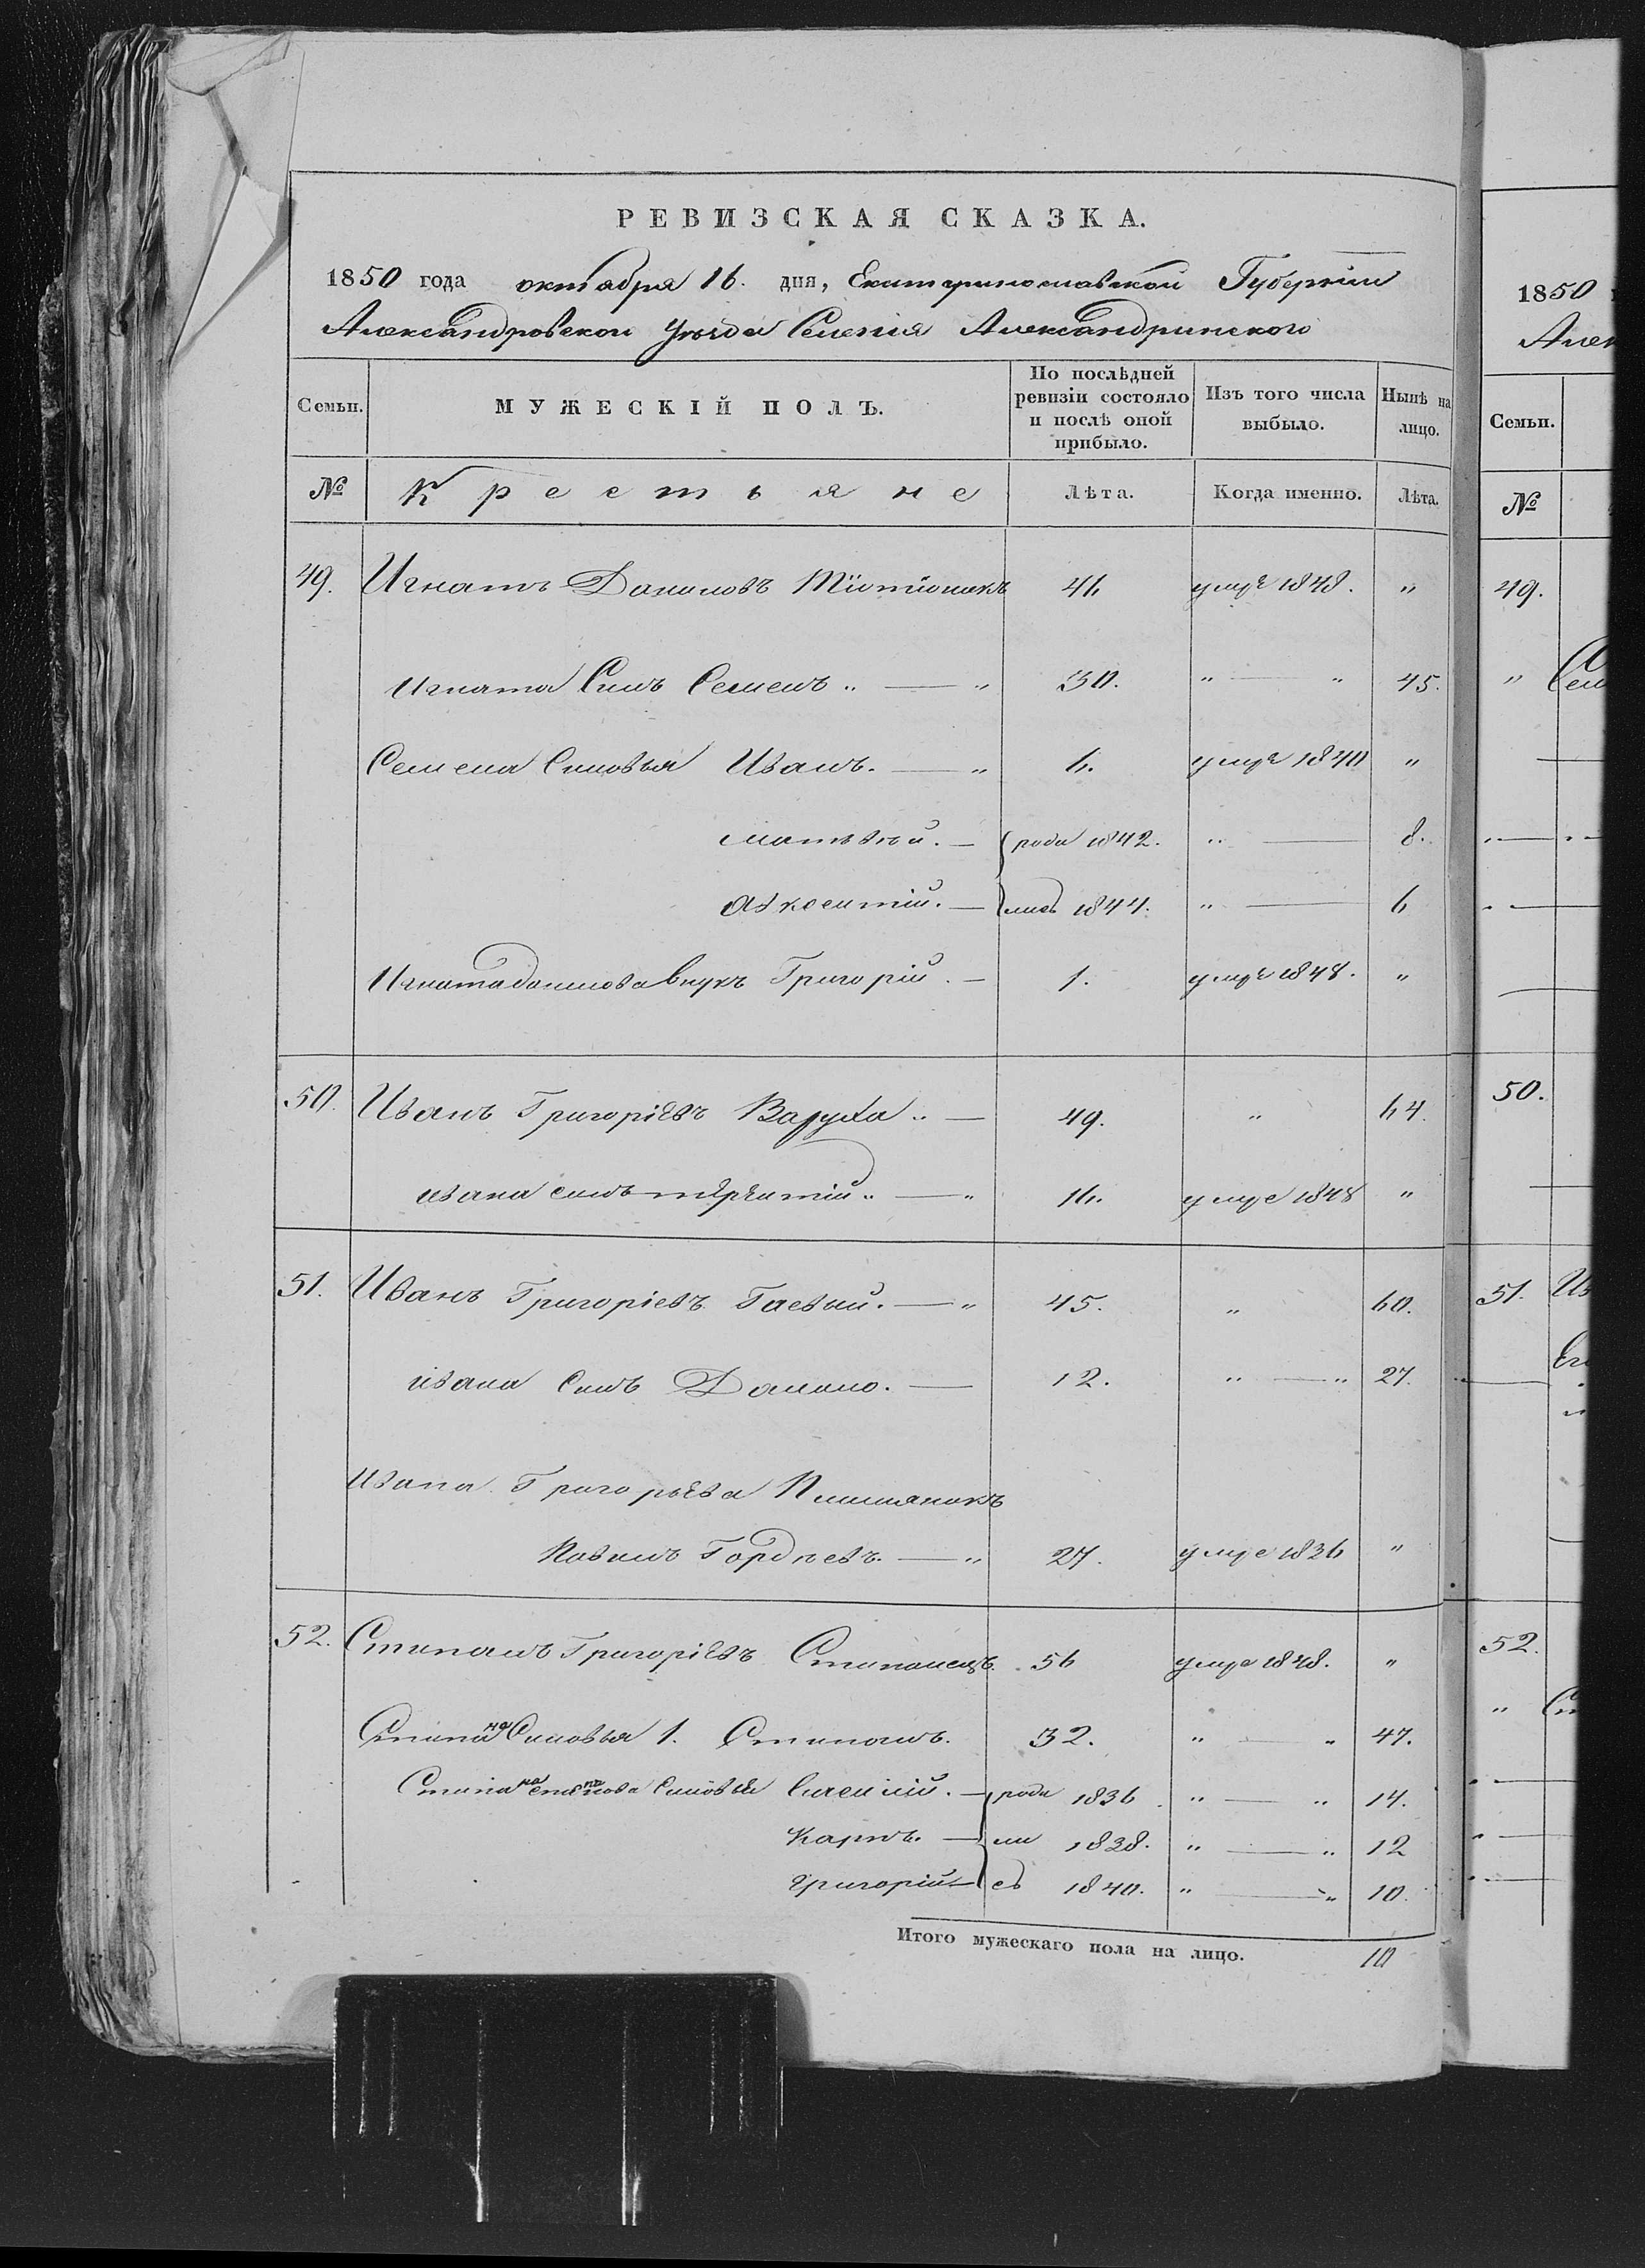 РЕВИЗСКАЯ СКАЗКА.
1850 года октября 16. дня, Екатеринославской Губерніи
Александровскои Уѣзда Селенія Александринского
Семьи. МУЖЕСКІЙ ПОЛЪ. По послѣдней ревизіи состояло и послѣ оной прибыло. Изъ того числа выбыло. Нынѣ на лицо.
№ Крестьяне Лѣта. Когда именно. Лѣта.
49. Игнатъ Даниловъ 46 умре 1848. "
Игната Синъ Семенъ " — " 30. " — " 45.
Семена Синовья Иванъ. — " 6. умре 1840 "
Матвѣй. — роди 1842. " — 8.
— лись 1844. " — 6
Игната данилова внукъ Григорій. — 1. умре 1848. "
50. Иванъ Григоріевъ " — 49. " 64.
ивана синъ терентій " — " 16. умре 1848 "
51. Иванъ Григоріевъ Гаевый. — " 45. " 60.
ивана Синъ Данило. — 12. " — " 27.
Ивана Григорьева
Гордѣевъ. — " 27. умре 1836 "
52. Степанъ Григоріевъ 56 умре 1848. "
Степана Синовья 1. Степанъ. 32. " — " 47.
Степана степанова Синовья — роди 1836. " — " 14.
Карпъ. — ли 1838. " — " 12
Григорій — сь 1840. " — " 10.
Итого мужескаго пола на лицо. 10
1850
Алек
Семьи.
№
49.
" Сем
50.
51. Ив
52.
" Ст